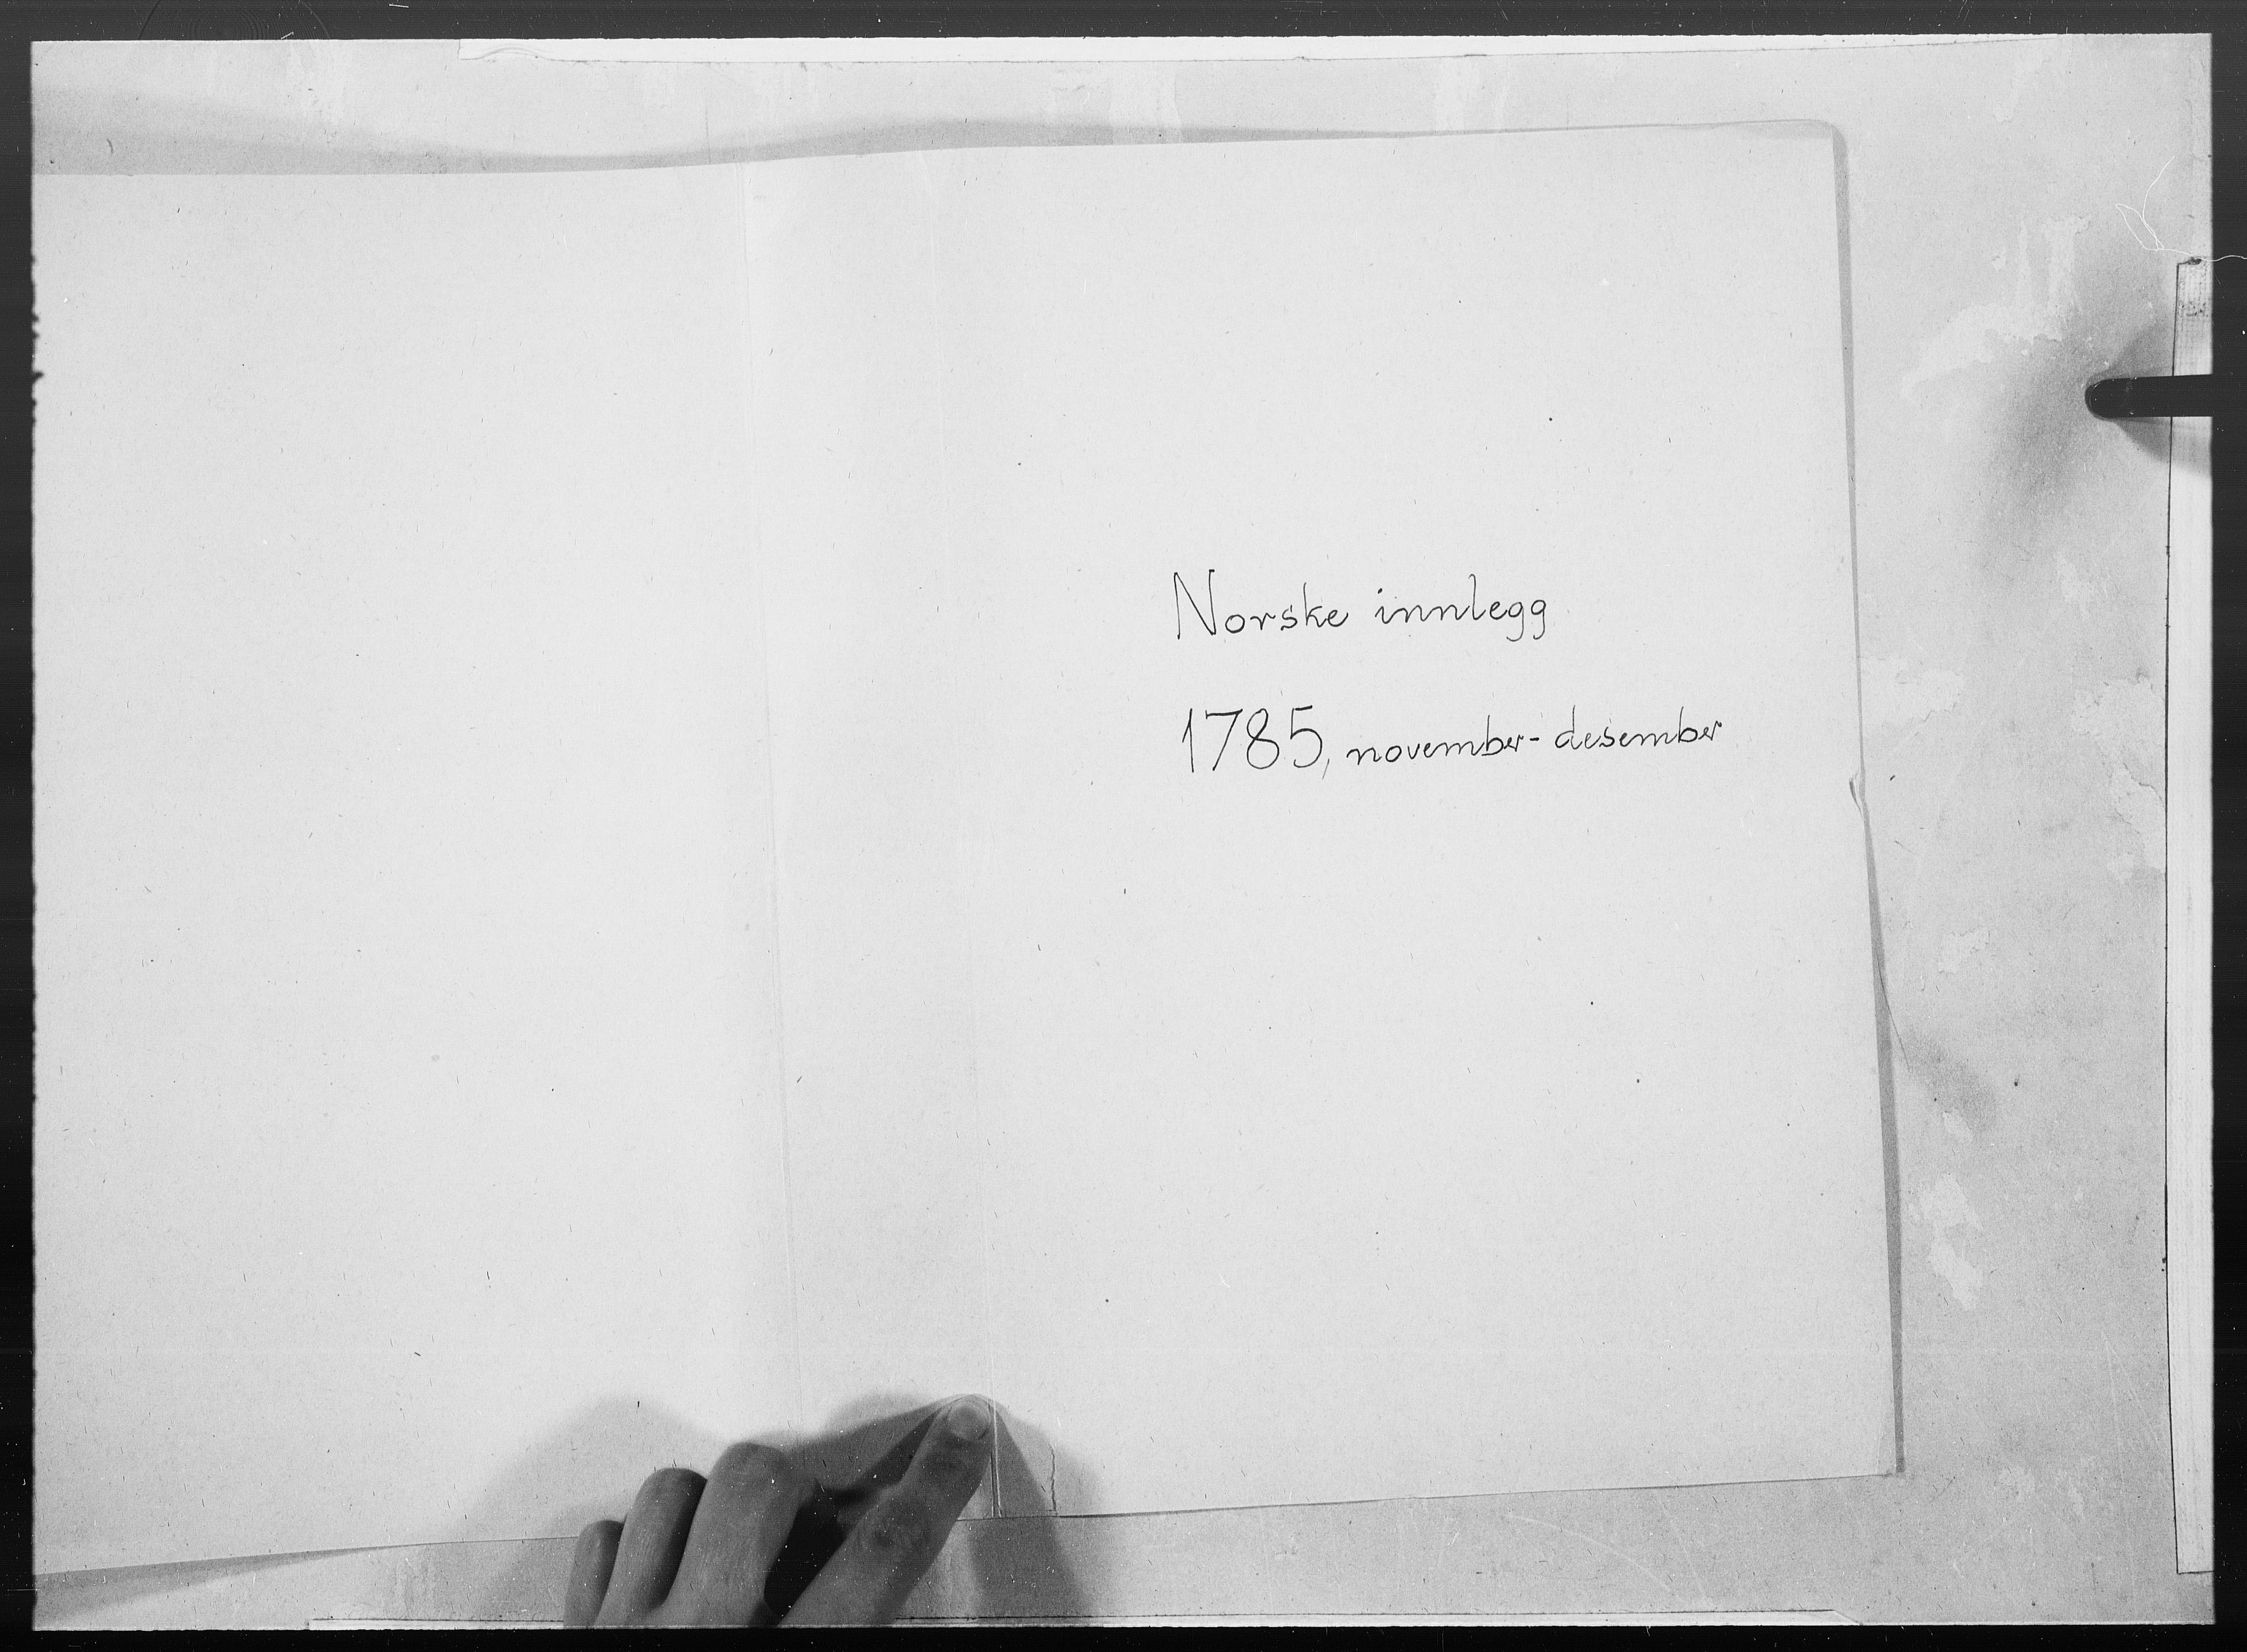 Norske innlegg
1785, november-desember